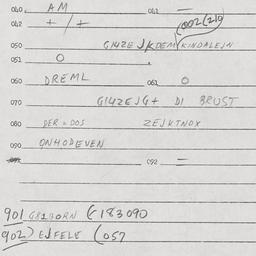 040 AM 041 —
042 + / + (002(210
050 GIUZEJKDEM KINDALEJN
051 O
060 DREML 061 O
070 GIUZEJG+ DI BRUST
080 DER = DOS ZEJKTNOX
090 ONHODEVEN
092 =
901 G8IBORN (183090
902) EJFELE (057